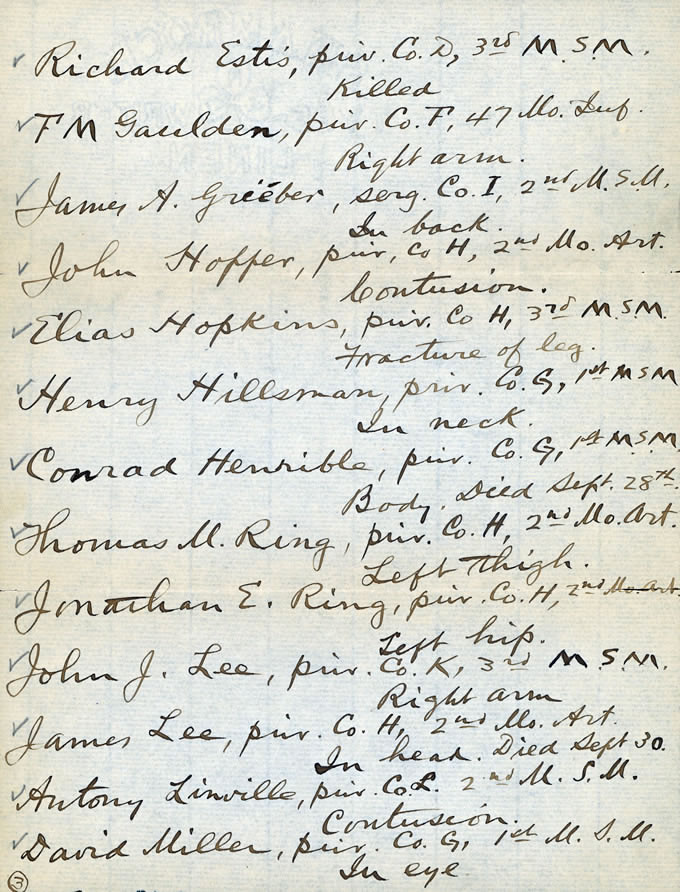 Richard Estis, priv. Co. D, 3rd M.S.M.
Killed
F M Gaulden, priv. Co. F, 47 Mo. Inf.
Right arm.
James A. Greeber, serg. Co. I, 2nd M.S.M.
In back.
John Hopper, priv, Co H, 2nd Mo. Art.
Contusion.
Elias Hopkins, priv. Co H, 3rd M.S.M.
Fracture of leg.
Henry Hillsman, priv. Co. G, 1st M S M
In neck.
Conrad Henrible, priv. Co. G, 1st M.S.M.
Body. Died Sept. 28th.
Thomas M. Ring, priv. Co. H, 2nd Mo. Art.
Left thigh.
Jonathan E. Ring, priv. Co. H, 2nd Mo. Art.
Left hip.
John J. Lee, priv. Co. K, 3rd M.S.M.
Right arm
James Lee, priv. Co. H, 2nd Mo. Art.
In head. Died Sept 30.
Antony Linville, priv. Co. L. 2nd M. S. M.
Contusion.
David Miller, priv. Co. G, 1st M. S. M.
In eye
3